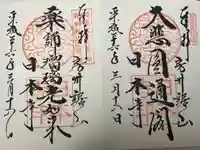 奉拝
房州鋸山
大悲圓通閣
日本寺
平成二十六年三月十六日
奉拝
房州鋸山
薬師瑠璃光如来
日本寺
平成二十六年三月十六日